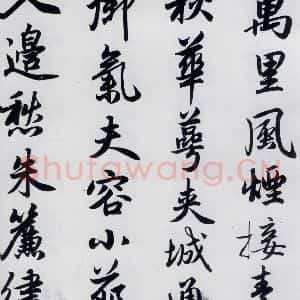 萬里風煙接素
秋華萼夾城通
御氣夫容小苑
入邊愁朱簾繡
Shufawang.CN